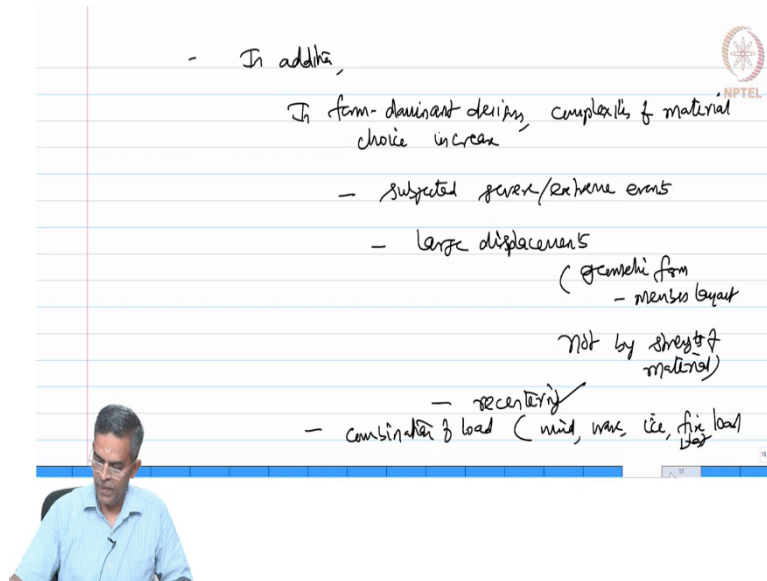 - In addition,
In form-dominant design, complexities of material
choice increase
- subjected severe/extreme events
- large displacements
(geometric form
- member layout
not by strength of
material)
- recentering
- combination of load (wind, wave, ice, fire load
NPTEL
16
17